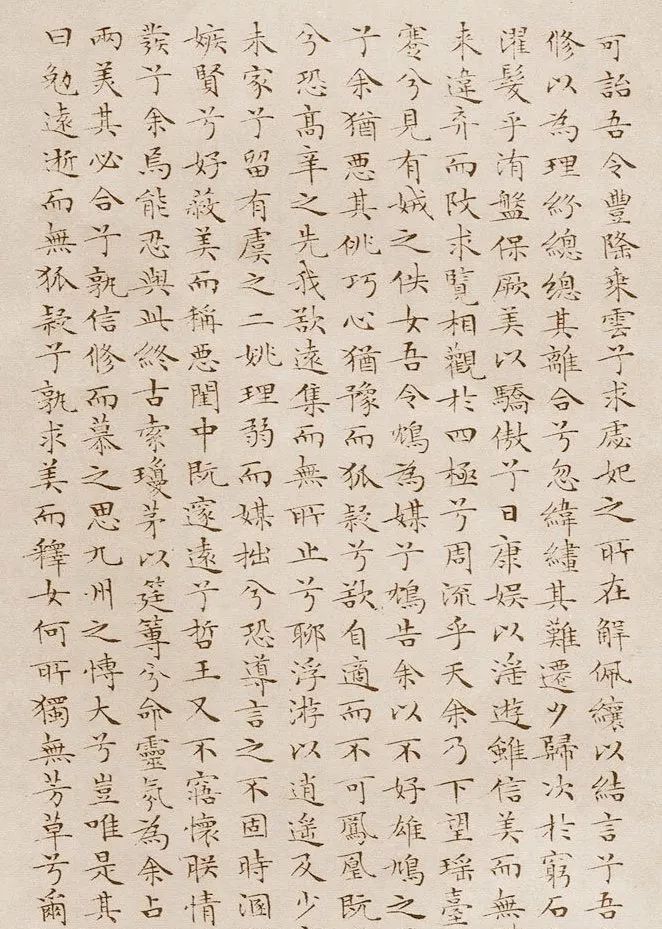 可詒吾令豐隆乘雲兮求虙妃之所在解佩纕以結言兮吾
修以為理紛總總其離合兮忽緯繣其難遷夕歸次於窮石
濯髮乎洧盤保厥美以驕傲兮日康娛以淫遊雖信美而無
來違弃而改求覽相觀於四極兮周流乎天余乃下望瑤臺
蹇兮見有娀之佚女吾令鴆為媒兮鴆告余以不好雄鳩之
兮余猶惡其佻巧心猶豫而狐疑兮欲自適而不可鳳凰既
兮恐高辛之先我欲遠集而無所止兮聊浮游以逍遙及少
未家兮留有虞之二姚理弱而媒拙兮恐導言之不固時溷
嫉賢兮好蔽美而稱惡閨中既邃遠兮哲王又不寤懷朕情
發兮余焉能忍與此終古索瓊茅以筳篿兮命靈氛為余占
兩美其必合兮孰信修而慕之思九州之博大兮豈唯是其
曰勉遠逝而無狐疑兮孰求美而釋女何所獨無芳草兮爾